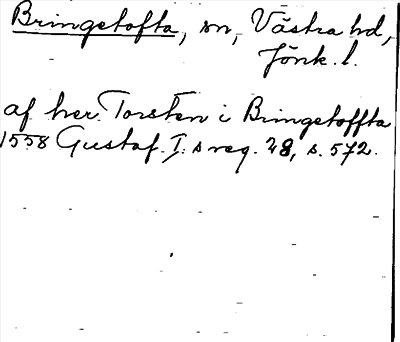 Bringetofta, sn, Västra hd,
Jönk. l.
af her Torsten i Bringetoffta
1558 Gustaf I:s reg. 28, s. 572.